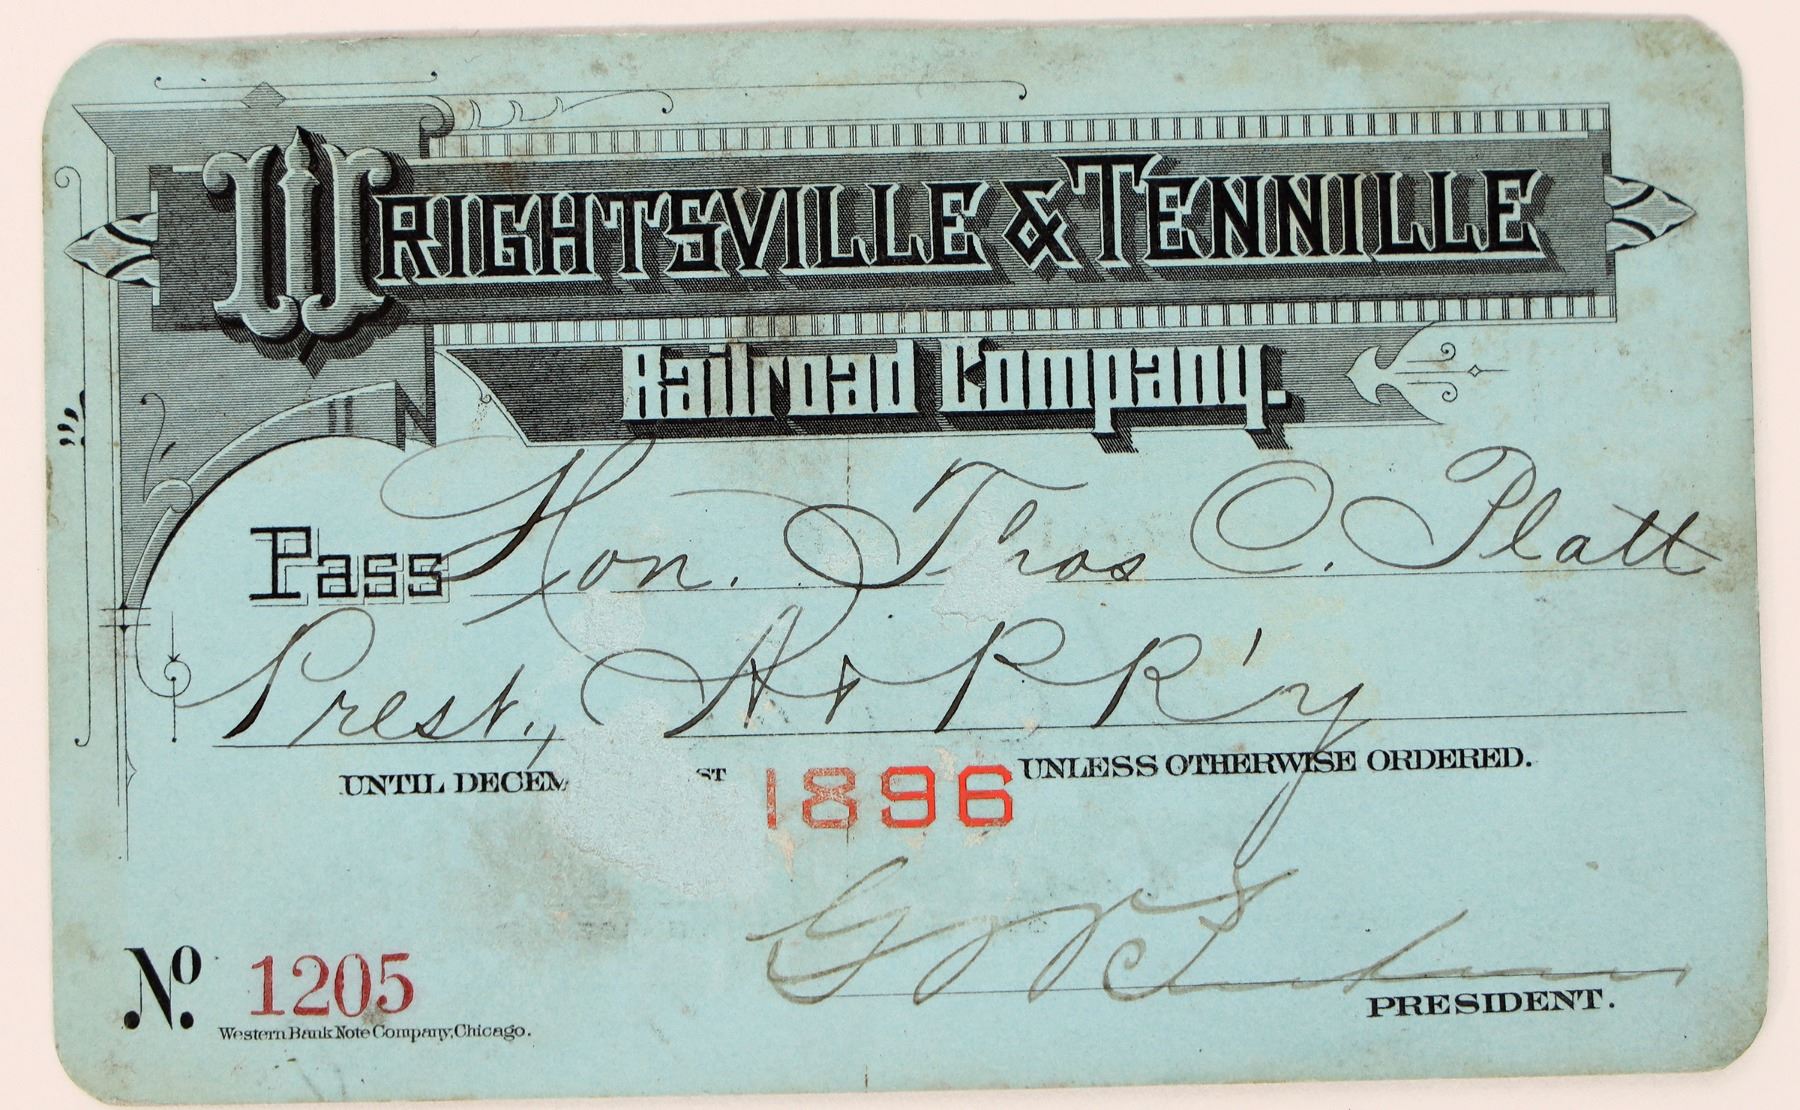 WRIGHTSVILLE & TENNILLE
Railroad Company.
Pass Hon. Thos C. Platt
Prest., A & P R'y
UNTIL DECEM ST 1896 UNLESS OTHERWISE ORDERED.
PRESIDENT.
No. 1205
Western Bank Note Company, Chicago.